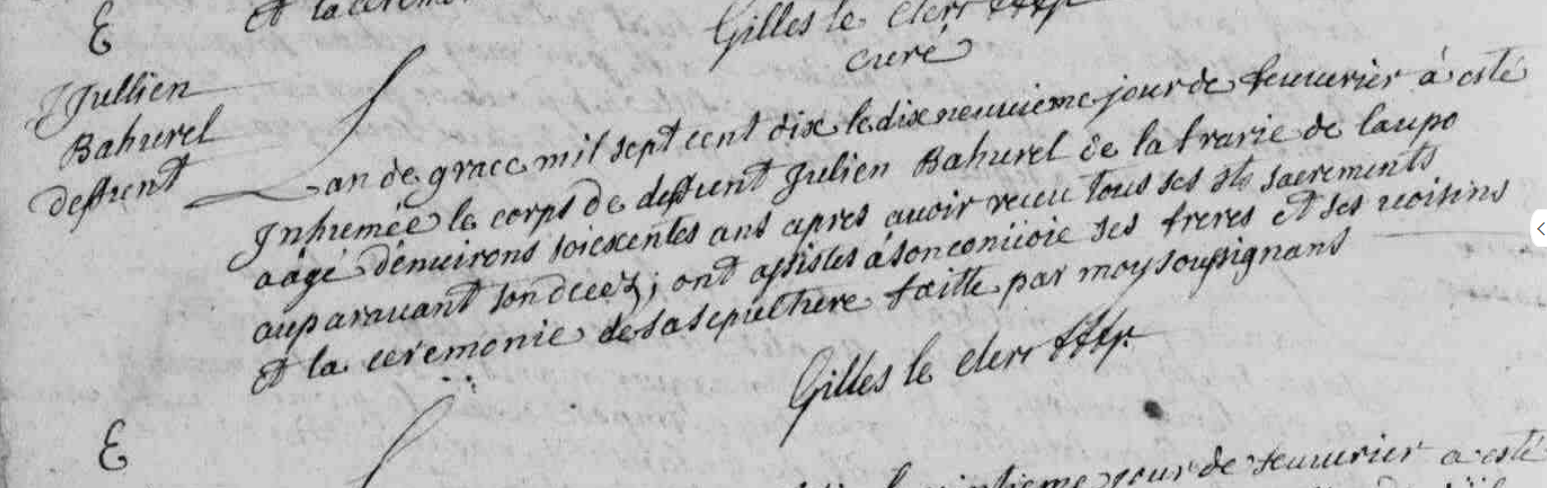 E
et la ceremo
Gilles le clerc
curé
Jullien
Bahurel
deffunt
Lan de grace mil sept cent dix le dix neuuieme jour de feuurier à esté
Inhumée le corps de deffunt Julien Bahurel de la frarie de laupo
aâgé dénuirons soiexentes ans apres auoir receu tous ses sts sacrements
auparauant son decez ; ont assistes à son conuoie ses freres et ses uoisins
et la ceremonie de sa sepulthere faitte par moy soussignans
Gilles le clerc
E
jour de feuurier a esté